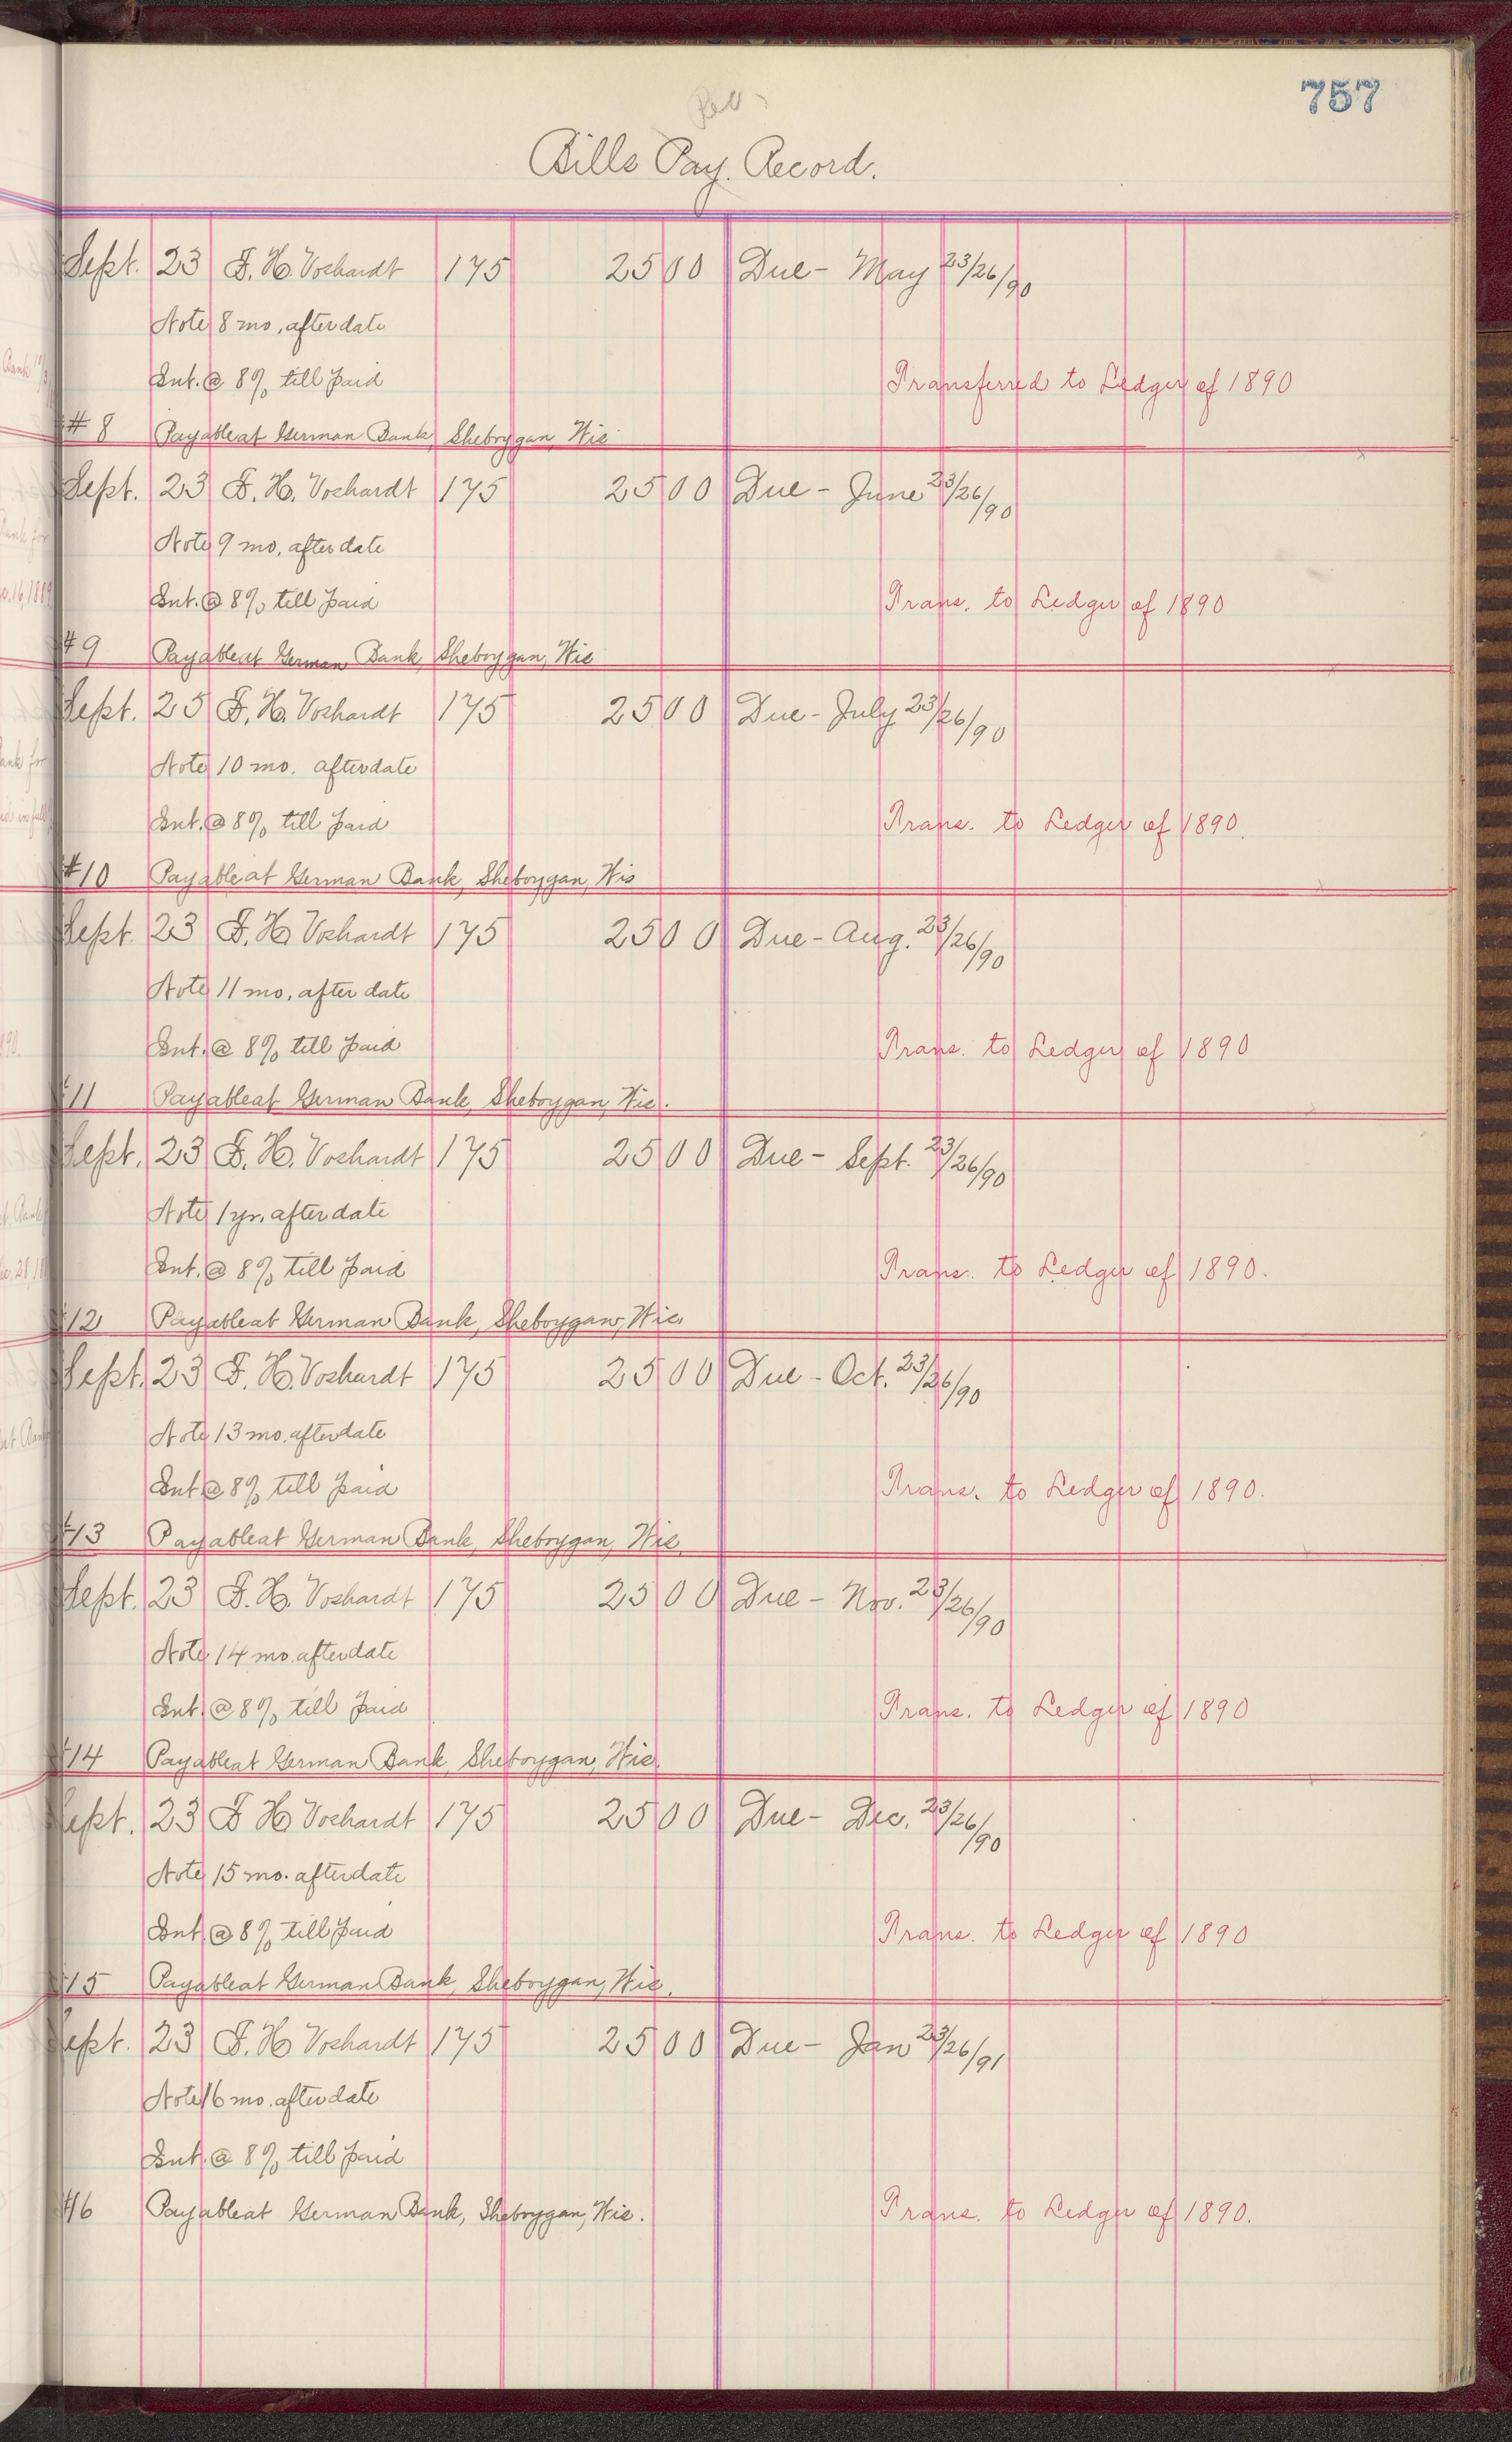 757
Bills Pay. Record.
Sept. 23 F. H. Voshardt 175 2500 Due - May 23/26/90
Note 8 mo. after date
Int. @ 8% till paid Transferred to Ledger of 1890
#8 Payable at German Bank, Sheboygan, Wis
Sept. 23 F. H. Voshardt 175 2500 Due - June 23/26/90
Note 9 mo. after date
Int. @ 8% till paid Trans. to Ledger of 1890
#9 Payable at German Bank, Sheboygan, Wis
Sept. 23 F. H. Voshardt 175 2500 Due - July 23/26/90
Note 10 mo. after date
Int. @ 8% till paid Trans. to Ledger of 1890.
#10 Payable at German Bank, Sheboygan, Wis
Sept. 23 F. H. Voshardt 175 2500 Due - Aug. 23/26/90
Note 11 mo. after date
Int. @ 8% till paid Trans. to Ledger of 1890
#11 Payable at German Bank, Sheboygan, Wis.
Sept. 23 F. H. Voshardt 175 2500 Due - Sept. 23/26/90
Note 1 yr. after date
Int. @ 8% till paid Trans. to Ledger of 1890.
#12 Payable at German Bank, Sheboygan, Wis.
Sept. 23 F. H. Voshardt 175 2500 Due - Oct. 23/26/90
Note 13 mo. after date
Int @ 8% till paid Trans. to Ledger of 1890.
#13 Payable at German Bank, Sheboygan, Wis.
Sept. 23 F. H. Voshardt 175 2500 Due - Nov. 23/26/90
Note 14 mo. after date
Int. @ 8% till paid Trans. to Ledger of 1890
#14 Payable at German Bank, Sheboygan, Wis.
Sept. 23 F H. Voshardt 175 2500 Due - Dec. 23/26/90
Note 15 mo. after date
Int. @ 8% till paid Trans. to Ledger of 1890
#15 Payable at German Bank, Sheboygan, Wis.
Sept. 23 F. H. Voshardt 175 2500 Due - Jan 23/26/91
Note 16 mo. after date
Int. @ 8% till paid
#16 Payable at German Bank, Sheboygan, Wis. Trans. to Ledger of 1890.